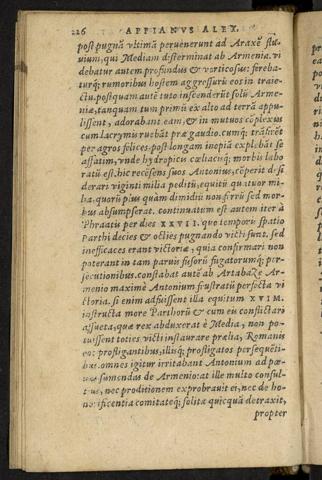 226 APPIANVS ALEX.
post pugnã vltimã peruenerunt ad Araxẽ flu-
uium, qui Mediam disterminat ab Armenia. vi
debatur autem profundus & vorticosus: fereba-
turq́; rumoribus hostem aggressurũ eos in traie-
ctu. postquam autẽ tuto inscenderũt solũ Arme-
niæ, tanquam tum primũ ex alto ad terrã appu-
lissent, adorabant eam, & in mutuos cõplexus
cum lacrymis ruebãt præ gaudio. cumq́; trãsirẽt
per agros felices. post longam inopiã explebãt se
affatim, vnde hydropicis cœliacisq́; morbis labo
ratũ est. hic recẽsens suos Antonius, cõperit d·si
derari viginti milia peditũ, equitũ quatuor mi-
lia. quorũ plus quàm dimidiũ non ferrũ sed mor-
bus absumpserat. continuatum est autem iter à
Phraatis per dies XXVII. quo temporis spatio
Parthi decies & octies pugnando victi sunt. sed
inefficaces erant victoriæ, quia confirmari non
poterant in tam paruis fusorũ fugatorumq́; per-
secutionibus. constabat autẽ ab Artabaze Ar-
menio maximè Antonium frustratũ perfecta vi
ctoria. si enim adfuissent illa equitum XVIM.
instructa more Parthorũ & cum eis conflictari
assueta, quæ rex abduxerat è Media, non po-
tuissent toties victi instaurare prælia, Romanis
eos profligantibus, illisq́; profligatos persequẽti-
bus. omnes igitur irritabant Antonium ad pœ-
nas sumendas de Armenio: at ille multo consul-
tius, nec proditionem exprobrauit ei, nec de ho-
norificentia comitateq́; solita quicquã detraxit,
propter